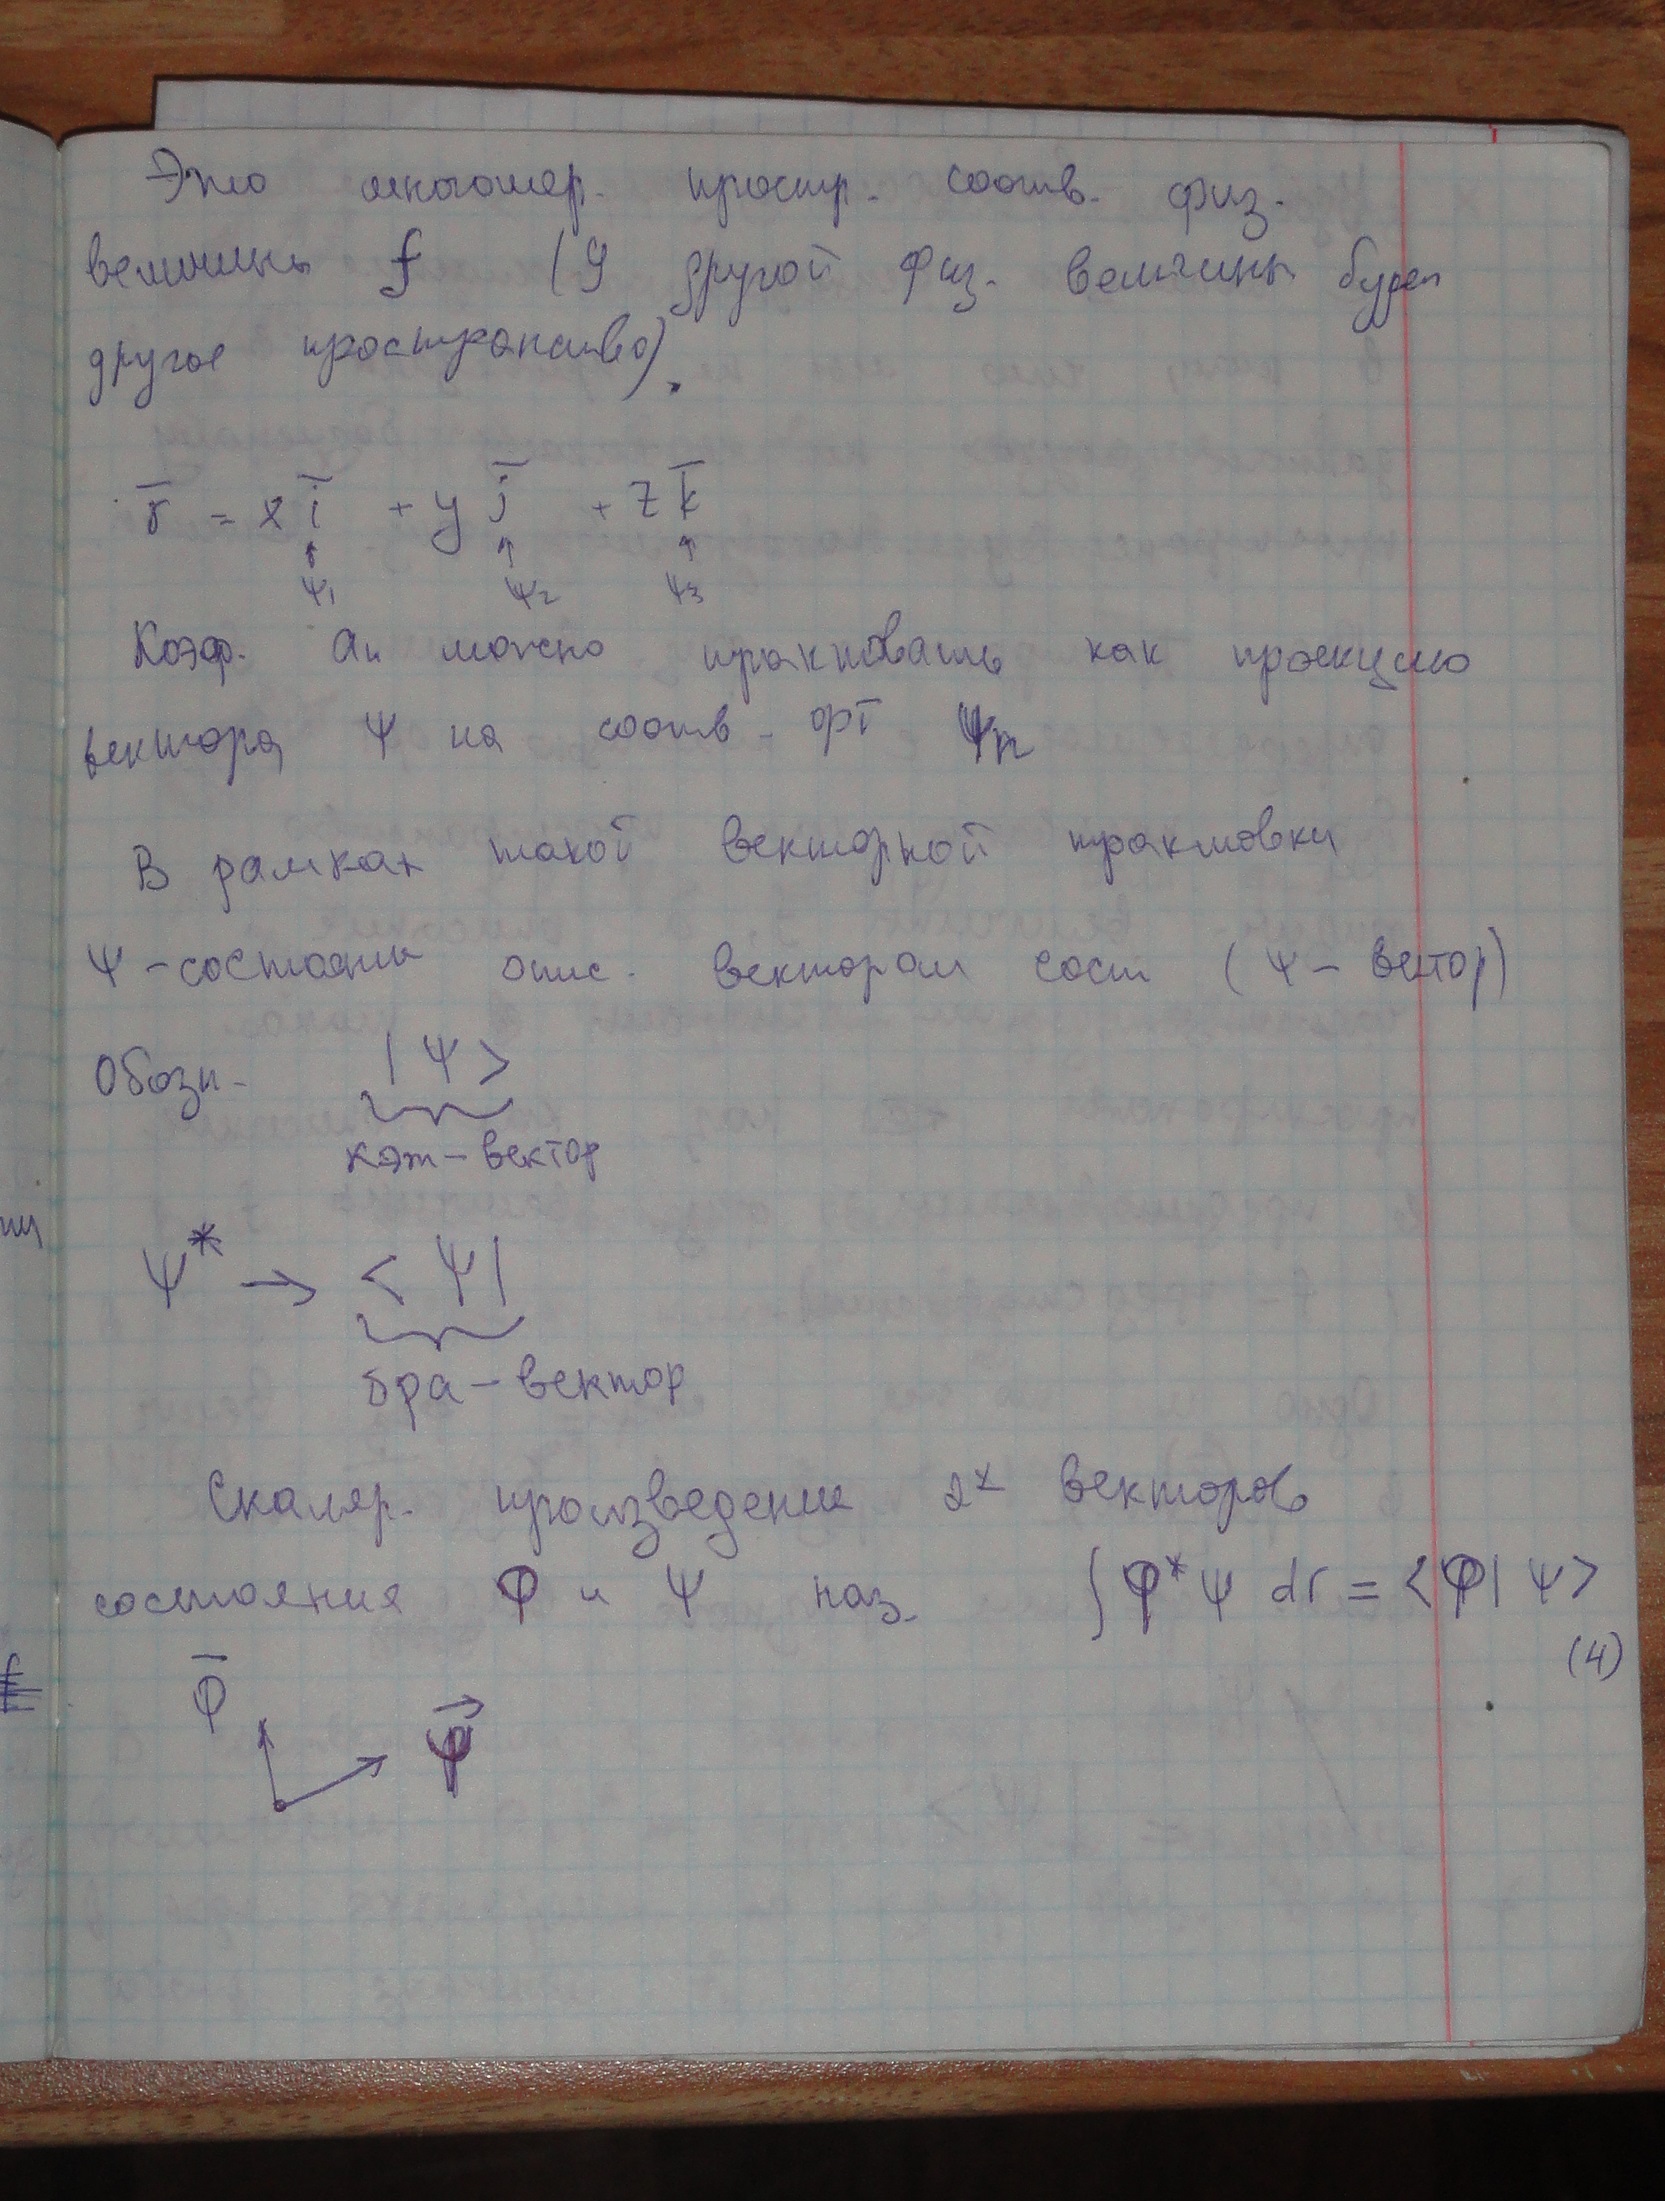 Это многомер. простр. соотв. физ.
величины f (У другой физ. величины будет
другое пространство).
r̄ = x ī + y j̄ + z k̄
↑ ↑ ↑
ψ₁ ψ₂ ψ₃
Коэф. aₙ можно трактовать как проекцию
вектора Ψ на соотв. орт Ψₙ
В рамках такой векторной трактовки
Ψ-состояния опис. вектором сост (Ψ - вектор)
Обозн. |Ψ>
кэт-вектор
Ψ* → <Ψ|
бра-вектор
Скаляр. произведение 2х векторов
состояния φ и Ψ наз. ∫ φ* Ψ dr = <φ|Ψ>
(4)
φ̄
ψ⃗